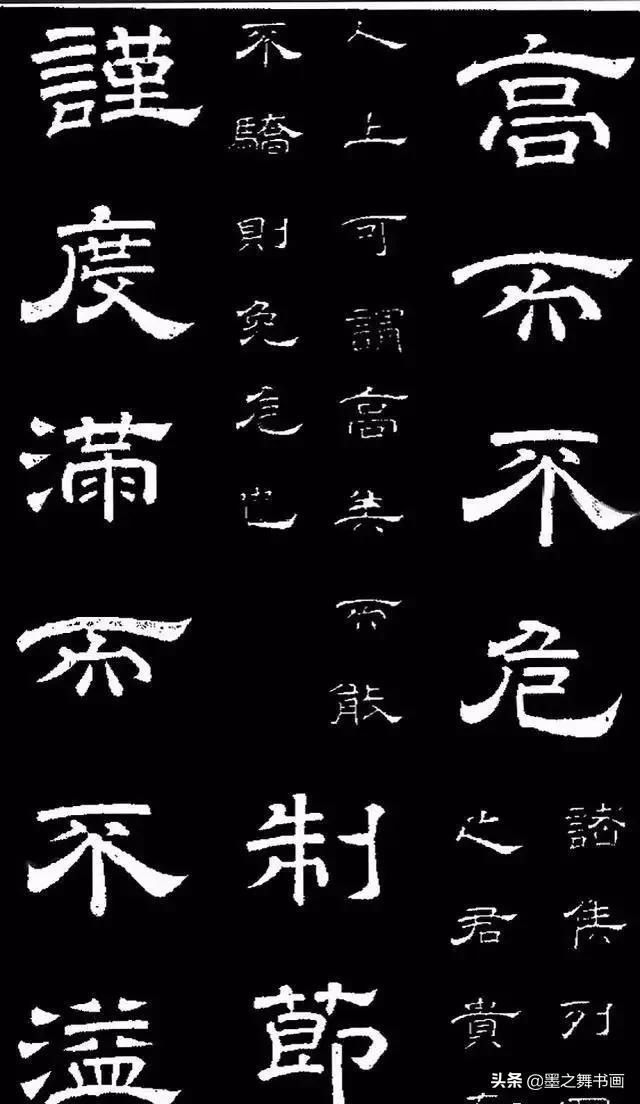 高而不危
諸侯列
之君貴
人上可謂高矣而能
不驕則免危也
制節
謹度滿而不溢
头条 @墨之舞书画